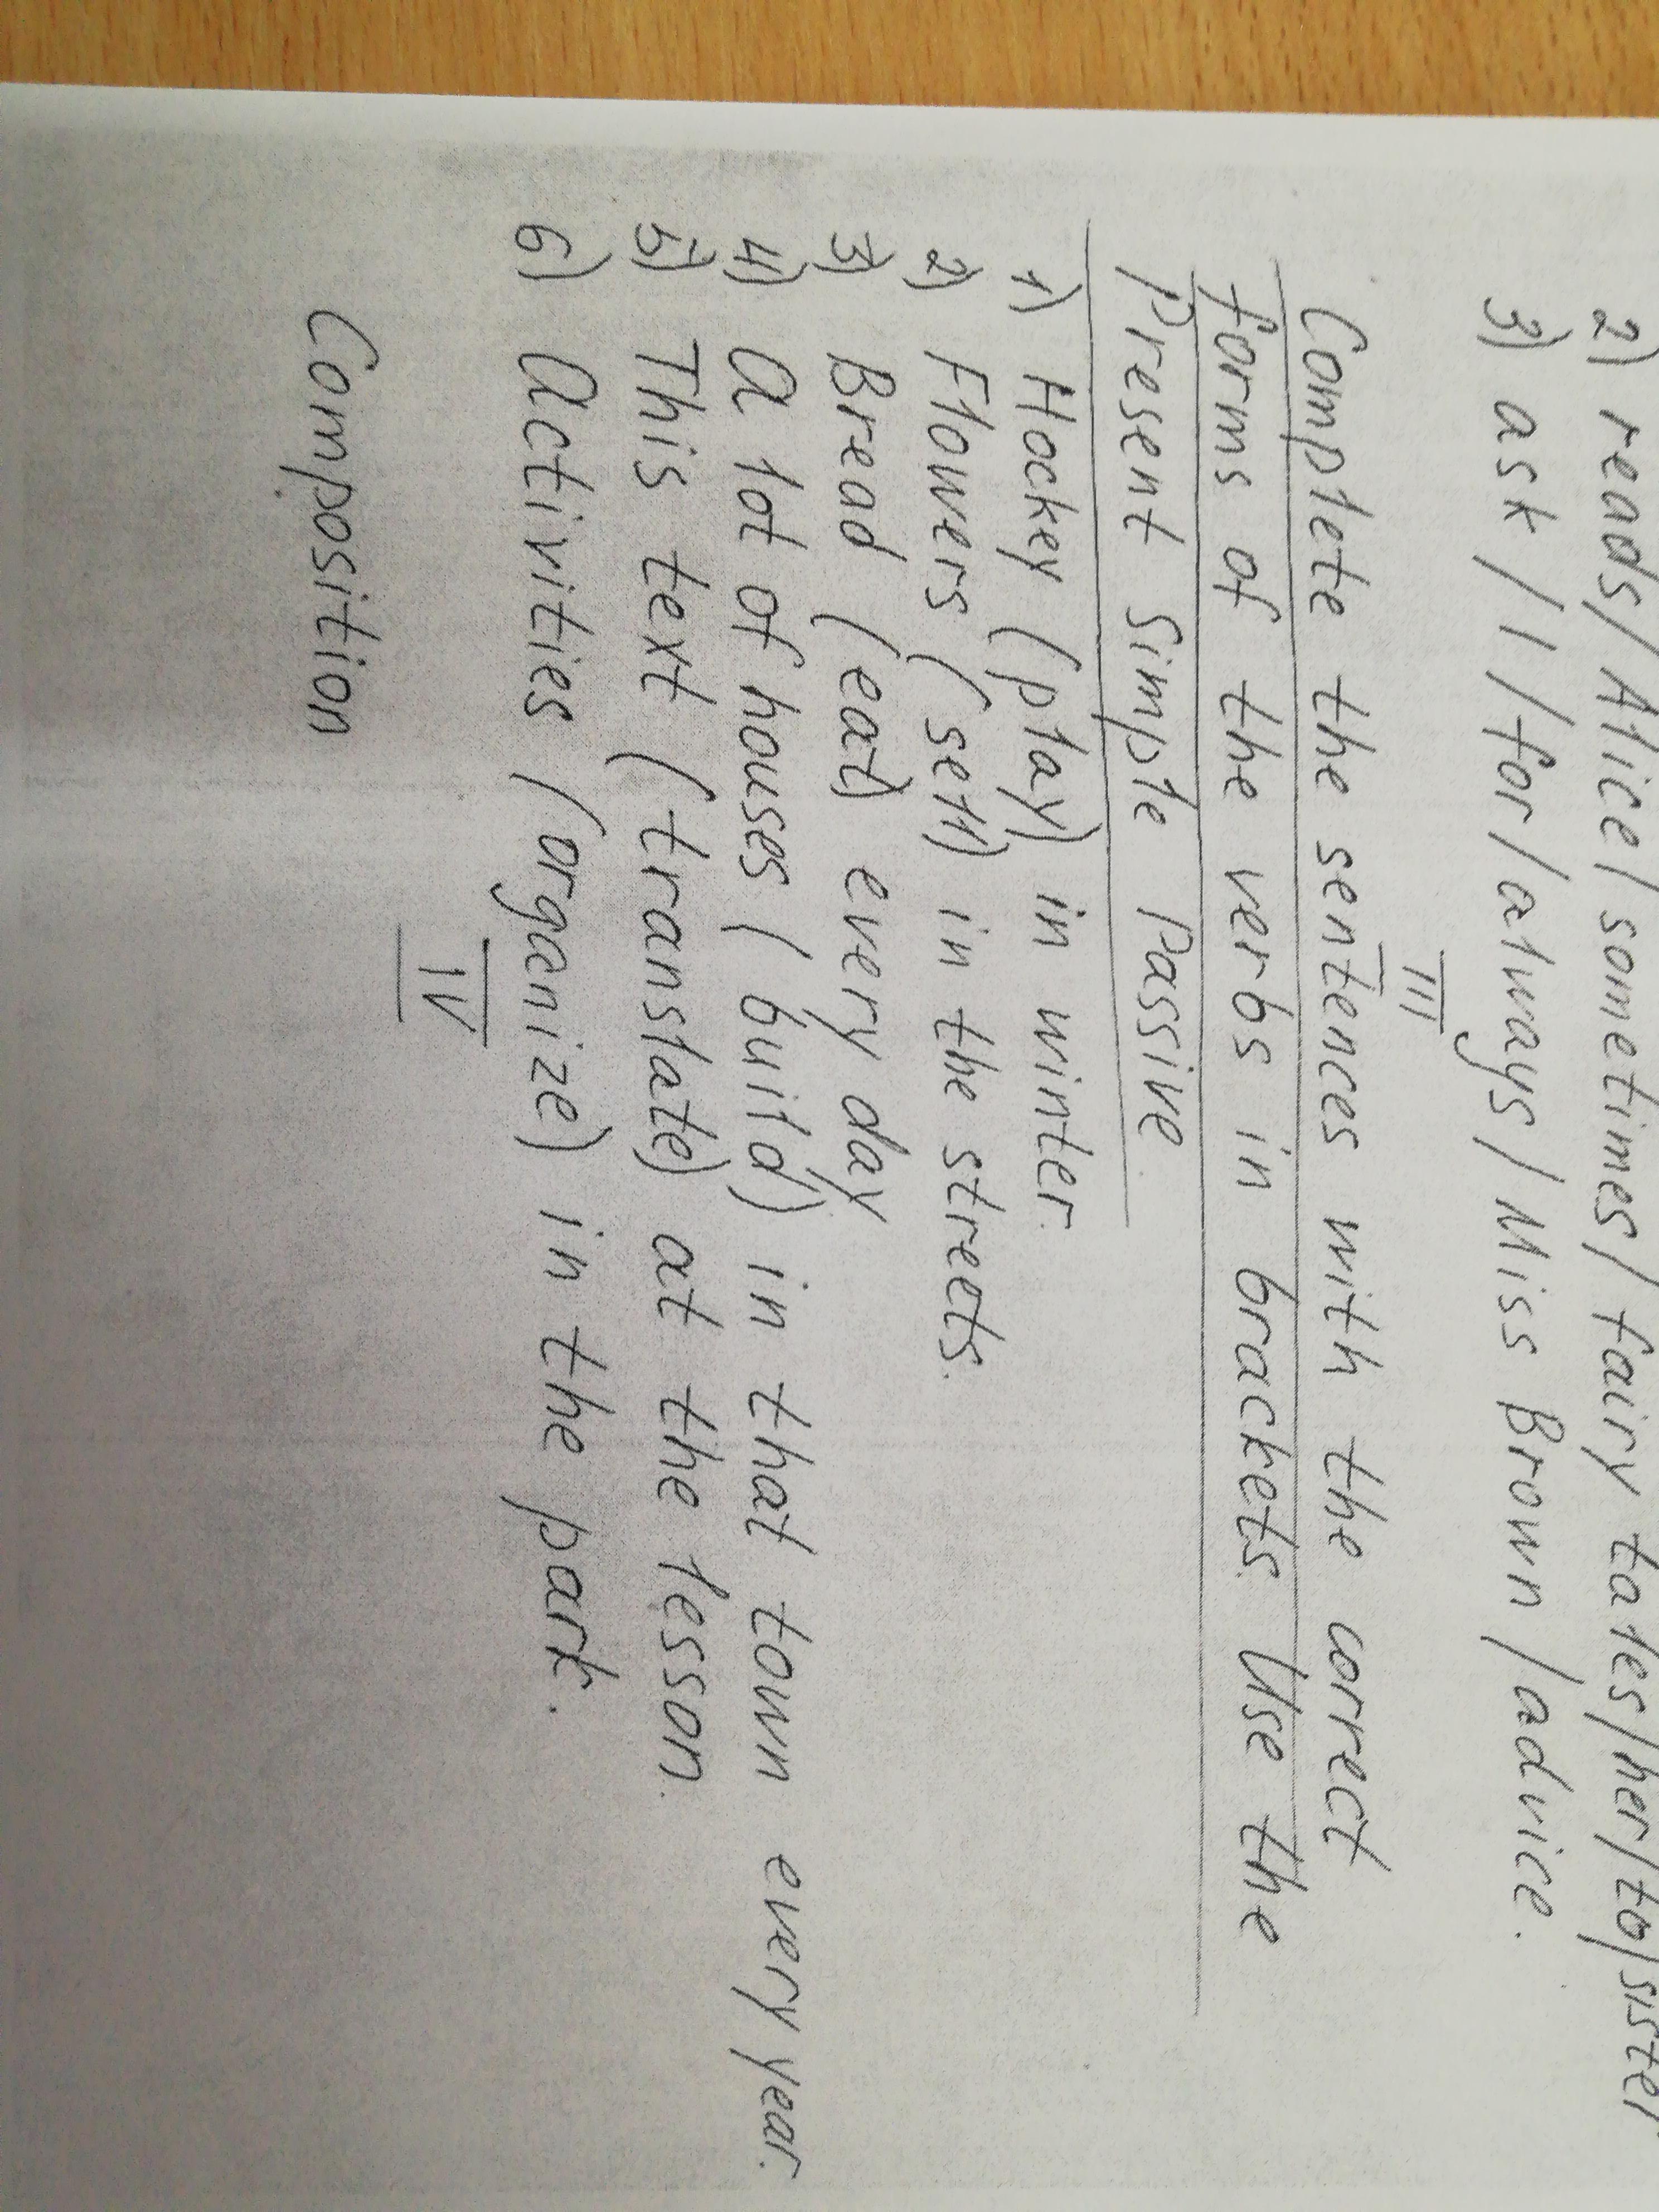 2) reads/Alice/sometimes/fairy tales/her/to/sister
3) ask/I/for/always/Miss Brown/advice.
III
Complete the sentences with the correct
forms of the verbs in brackets. Use the
Present Simple Passive
1) Hockey (play) in winter.
2) Flowers (sell) in the streets.
3) Bread (eat) every day
4) A lot of houses (build) in that town every year.
5) This text (translate) at the lesson.
6) Activities (organize) in the park.
IV
Composition